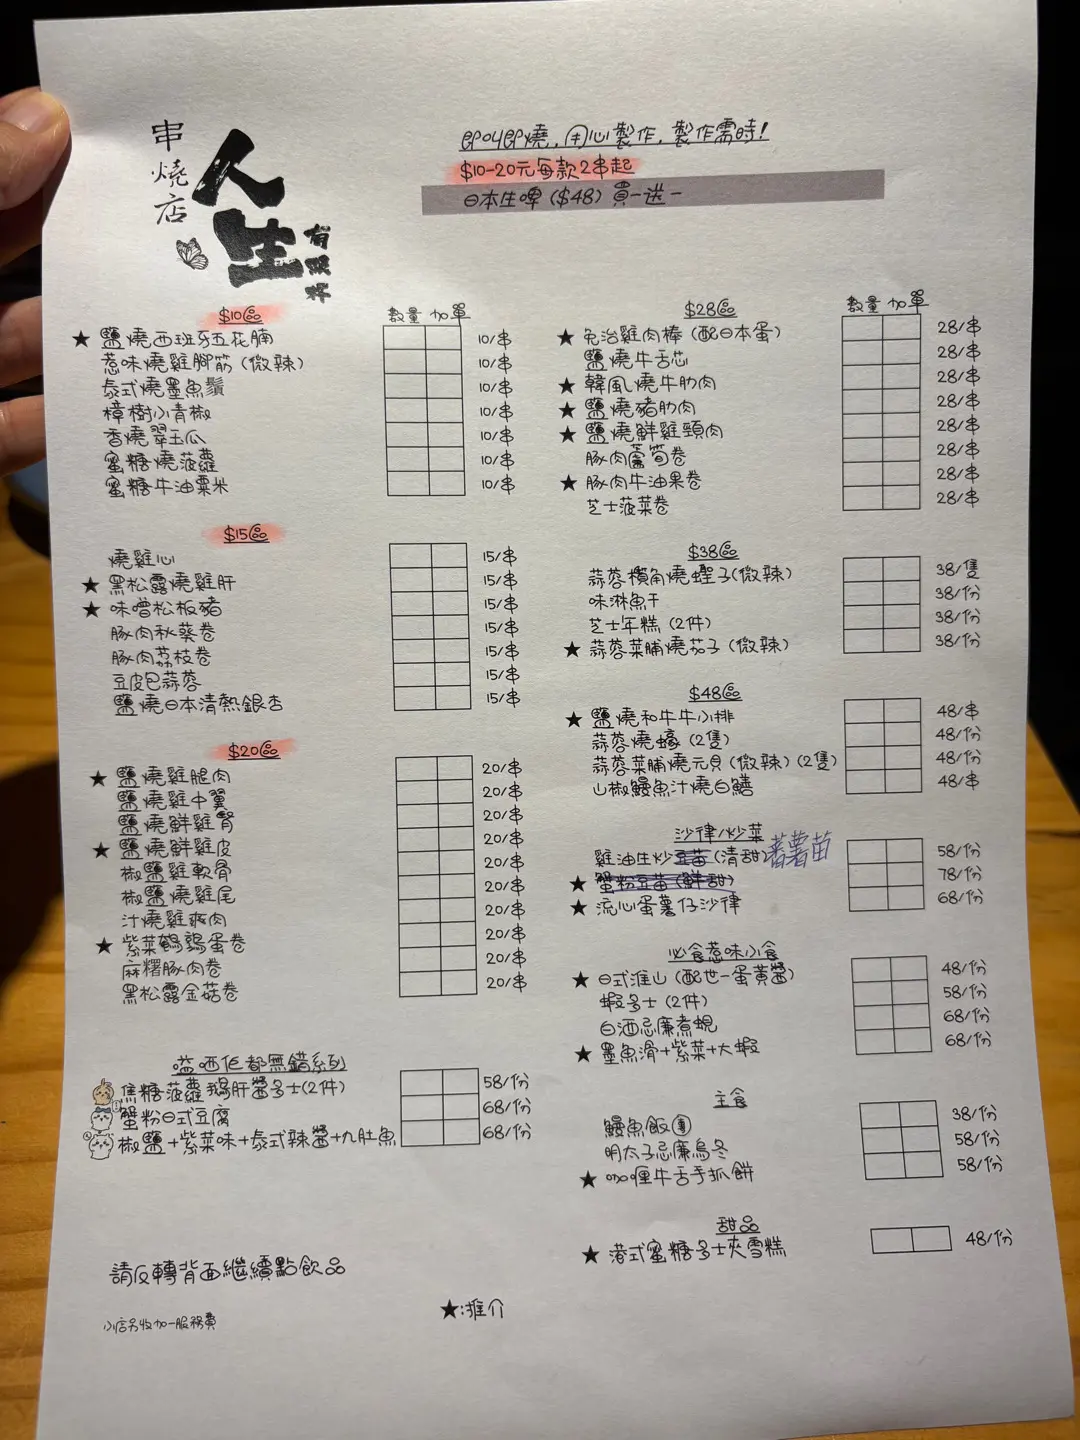 串燒店
人生
有限杯
即叫即燒，用心製作，製作需時！
$10-20元每款2串起
日本生啤（$48）買一送一
$10區 數量 加單
★ 鹽燒西班牙五花腩 10/串
惹味燒雞腳筋（微辣） 10/串
泰式燒墨魚鬚 10/串
樟樹小青椒 10/串
香燒翠玉瓜 10/串
蜜糖燒菠蘿 10/串
蜜糖牛油粟米 10/串
$15區
燒雞心 15/串
★ 黑松露燒雞肝 15/串
★ 味噌松板豬 15/串
豚肉秋葵卷 15/串
豚肉荔枝卷 15/串
豆皮包蒜蓉 15/串
鹽燒日本清熱銀杏 15/串
$20區
★ 鹽燒雞腿肉 20/串
鹽燒雞中翼 20/串
鹽燒鮮雞腎 20/串
★ 鹽燒鮮雞皮 20/串
椒鹽雞軟骨 20/串
椒鹽燒雞尾 20/串
汁燒雞爽肉 20/串
★ 紫菜鵪鶉蛋卷 20/串
麻糬豚肉卷 20/串
黑松露金菇卷 20/串
嗌哂佢都無錯系列
焦糖菠蘿鵝肝醬多士(2件) 58/份
蟹粉日式豆腐 68/份
椒鹽+紫菜味+泰式辣醬+九肚魚 68/份
請反轉背面繼續點飲品
小店另收加一服務費
★:推介
$28區 數量 加單
★ 免治雞肉棒（配日本蛋） 28/串
鹽燒牛舌芯 28/串
★ 韓風燒牛肋肉 28/串
★ 鹽燒豬肋肉 28/串
★ 鹽燒鮮雞頸肉 28/串
豚肉蘆筍卷 28/串
★ 豚肉牛油果卷 28/串
芝士菠菜卷 28/串
$38區
蒜蓉欖角燒蟶子(微辣) 38/隻
味淋魚干 38/份
芝士年糕（2件） 38/份
★ 蒜蓉菜脯燒茄子（微辣） 38/份
$48區
★ 鹽燒和牛牛小排 48/串
蒜蓉燒蠔（2隻） 48/份
蒜蓉菜脯燒元貝（微辣）(2隻) 48/份
山椒鰻魚汁燒白鱔 48/串
沙律/炒菜
雞油生炒豆苗（清甜） 蕃薯苗 58/份
★ 蟹粉豆苗（鮮甜） 78/份
★ 流心蛋薯仔沙律 68/份
必食惹味小食
★ 日式淮山（配世一蛋黃醬） 48/份
蝦多士（2件） 58/份
白酒忌廉煮蜆 68/份
★ 墨魚滑+紫菜+大蝦 68/份
主食
鰻魚飯團 38/份
明太子忌廉烏冬 58/份
★ 咖喱牛舌手抓餅 58/份
甜品
★ 港式蜜糖多士夾雪糕 48/份